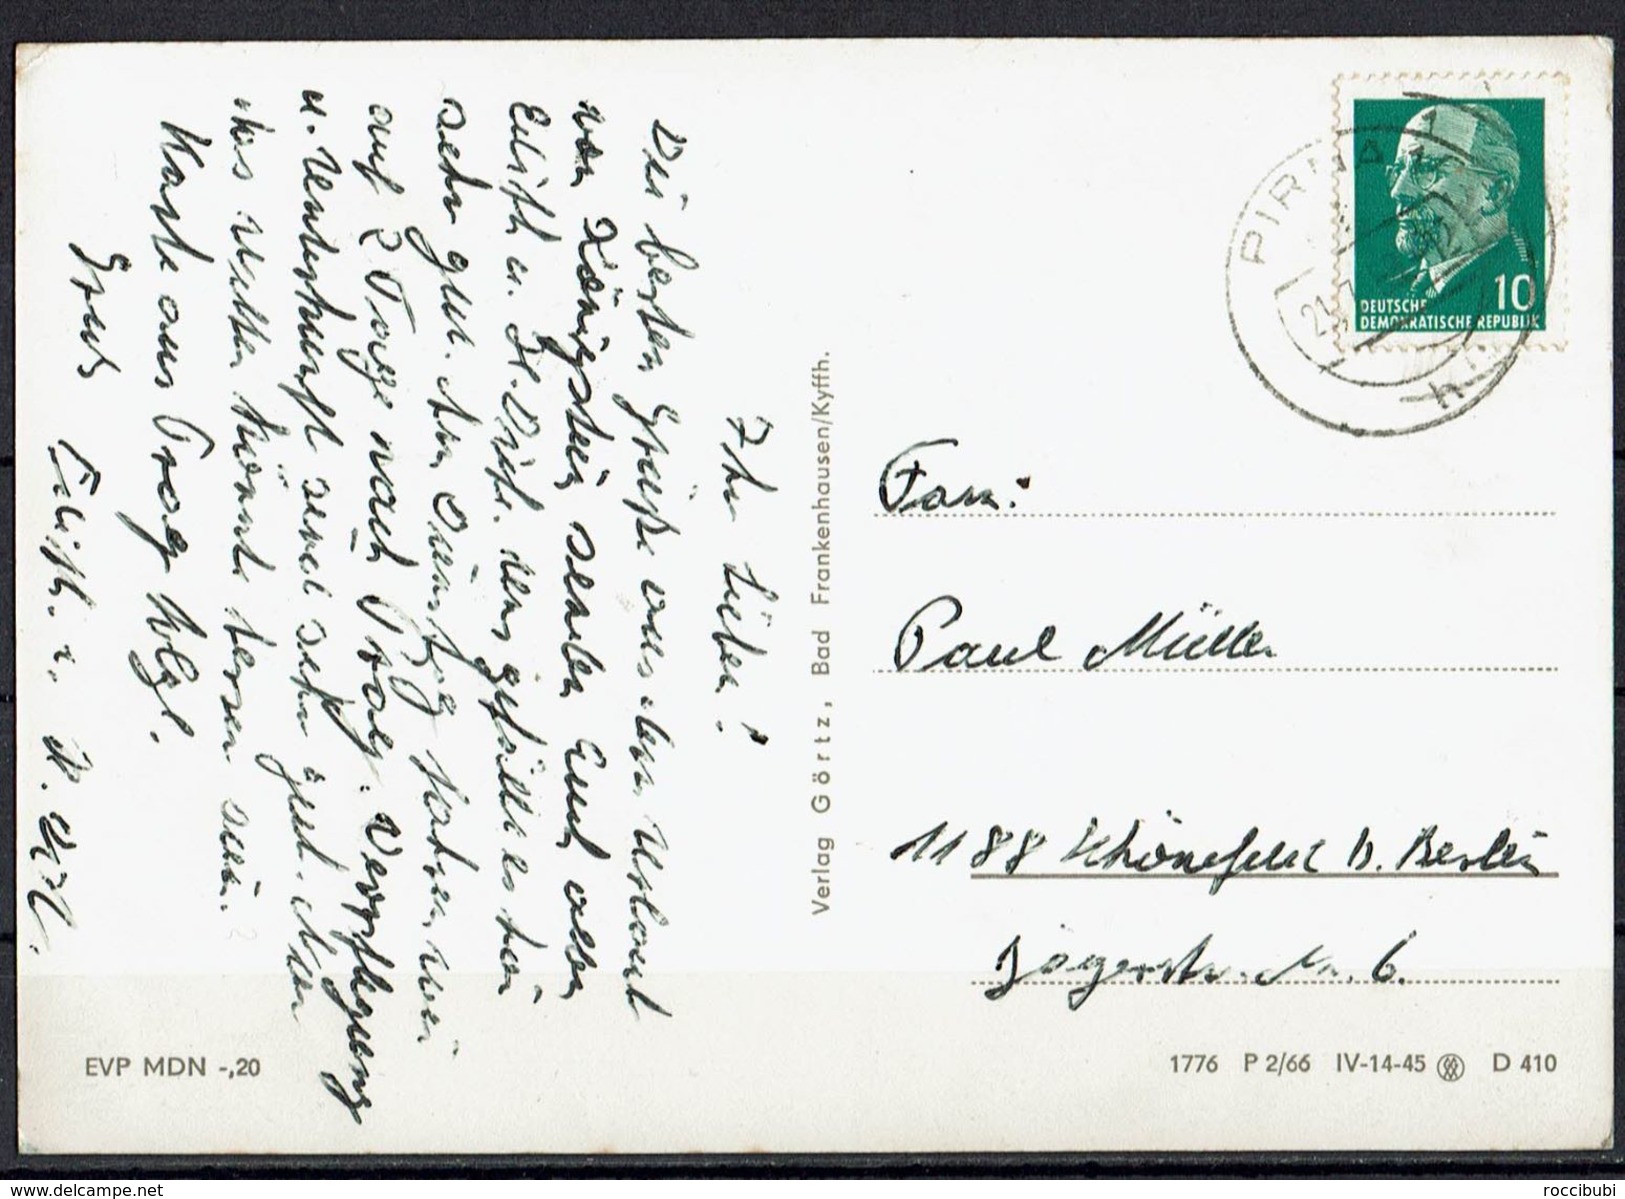 Ihr Lieben!
Die besten Grüße aus dem Urlaub
von Königstein senden Euch allen
Edith u. H. uns gefällt es hier
sehr gut. Am Dienstag fahren wir
auf 2 Tage nach Prag. Verpflegung
u. Unterkunft sind sehr gut. Nur
das Wetter könnte besser sein.
Karte aus Prag folgt.
Gruß Edith. u. H.
EVP MDN -,20
Verlag Görtz, Bad Frankenhausen/Kyffh.
PIRNA 1
21.
DEUTSCHE
DEMOKRATISCHE REPUBLIK
10
Fam:
Paul Müller
1188 Schönefeld b. Berlin
Jägerstr. Nr. 6.
1776 P 2/66 IV-14-45 D 410
delcampe.net
roccibubi